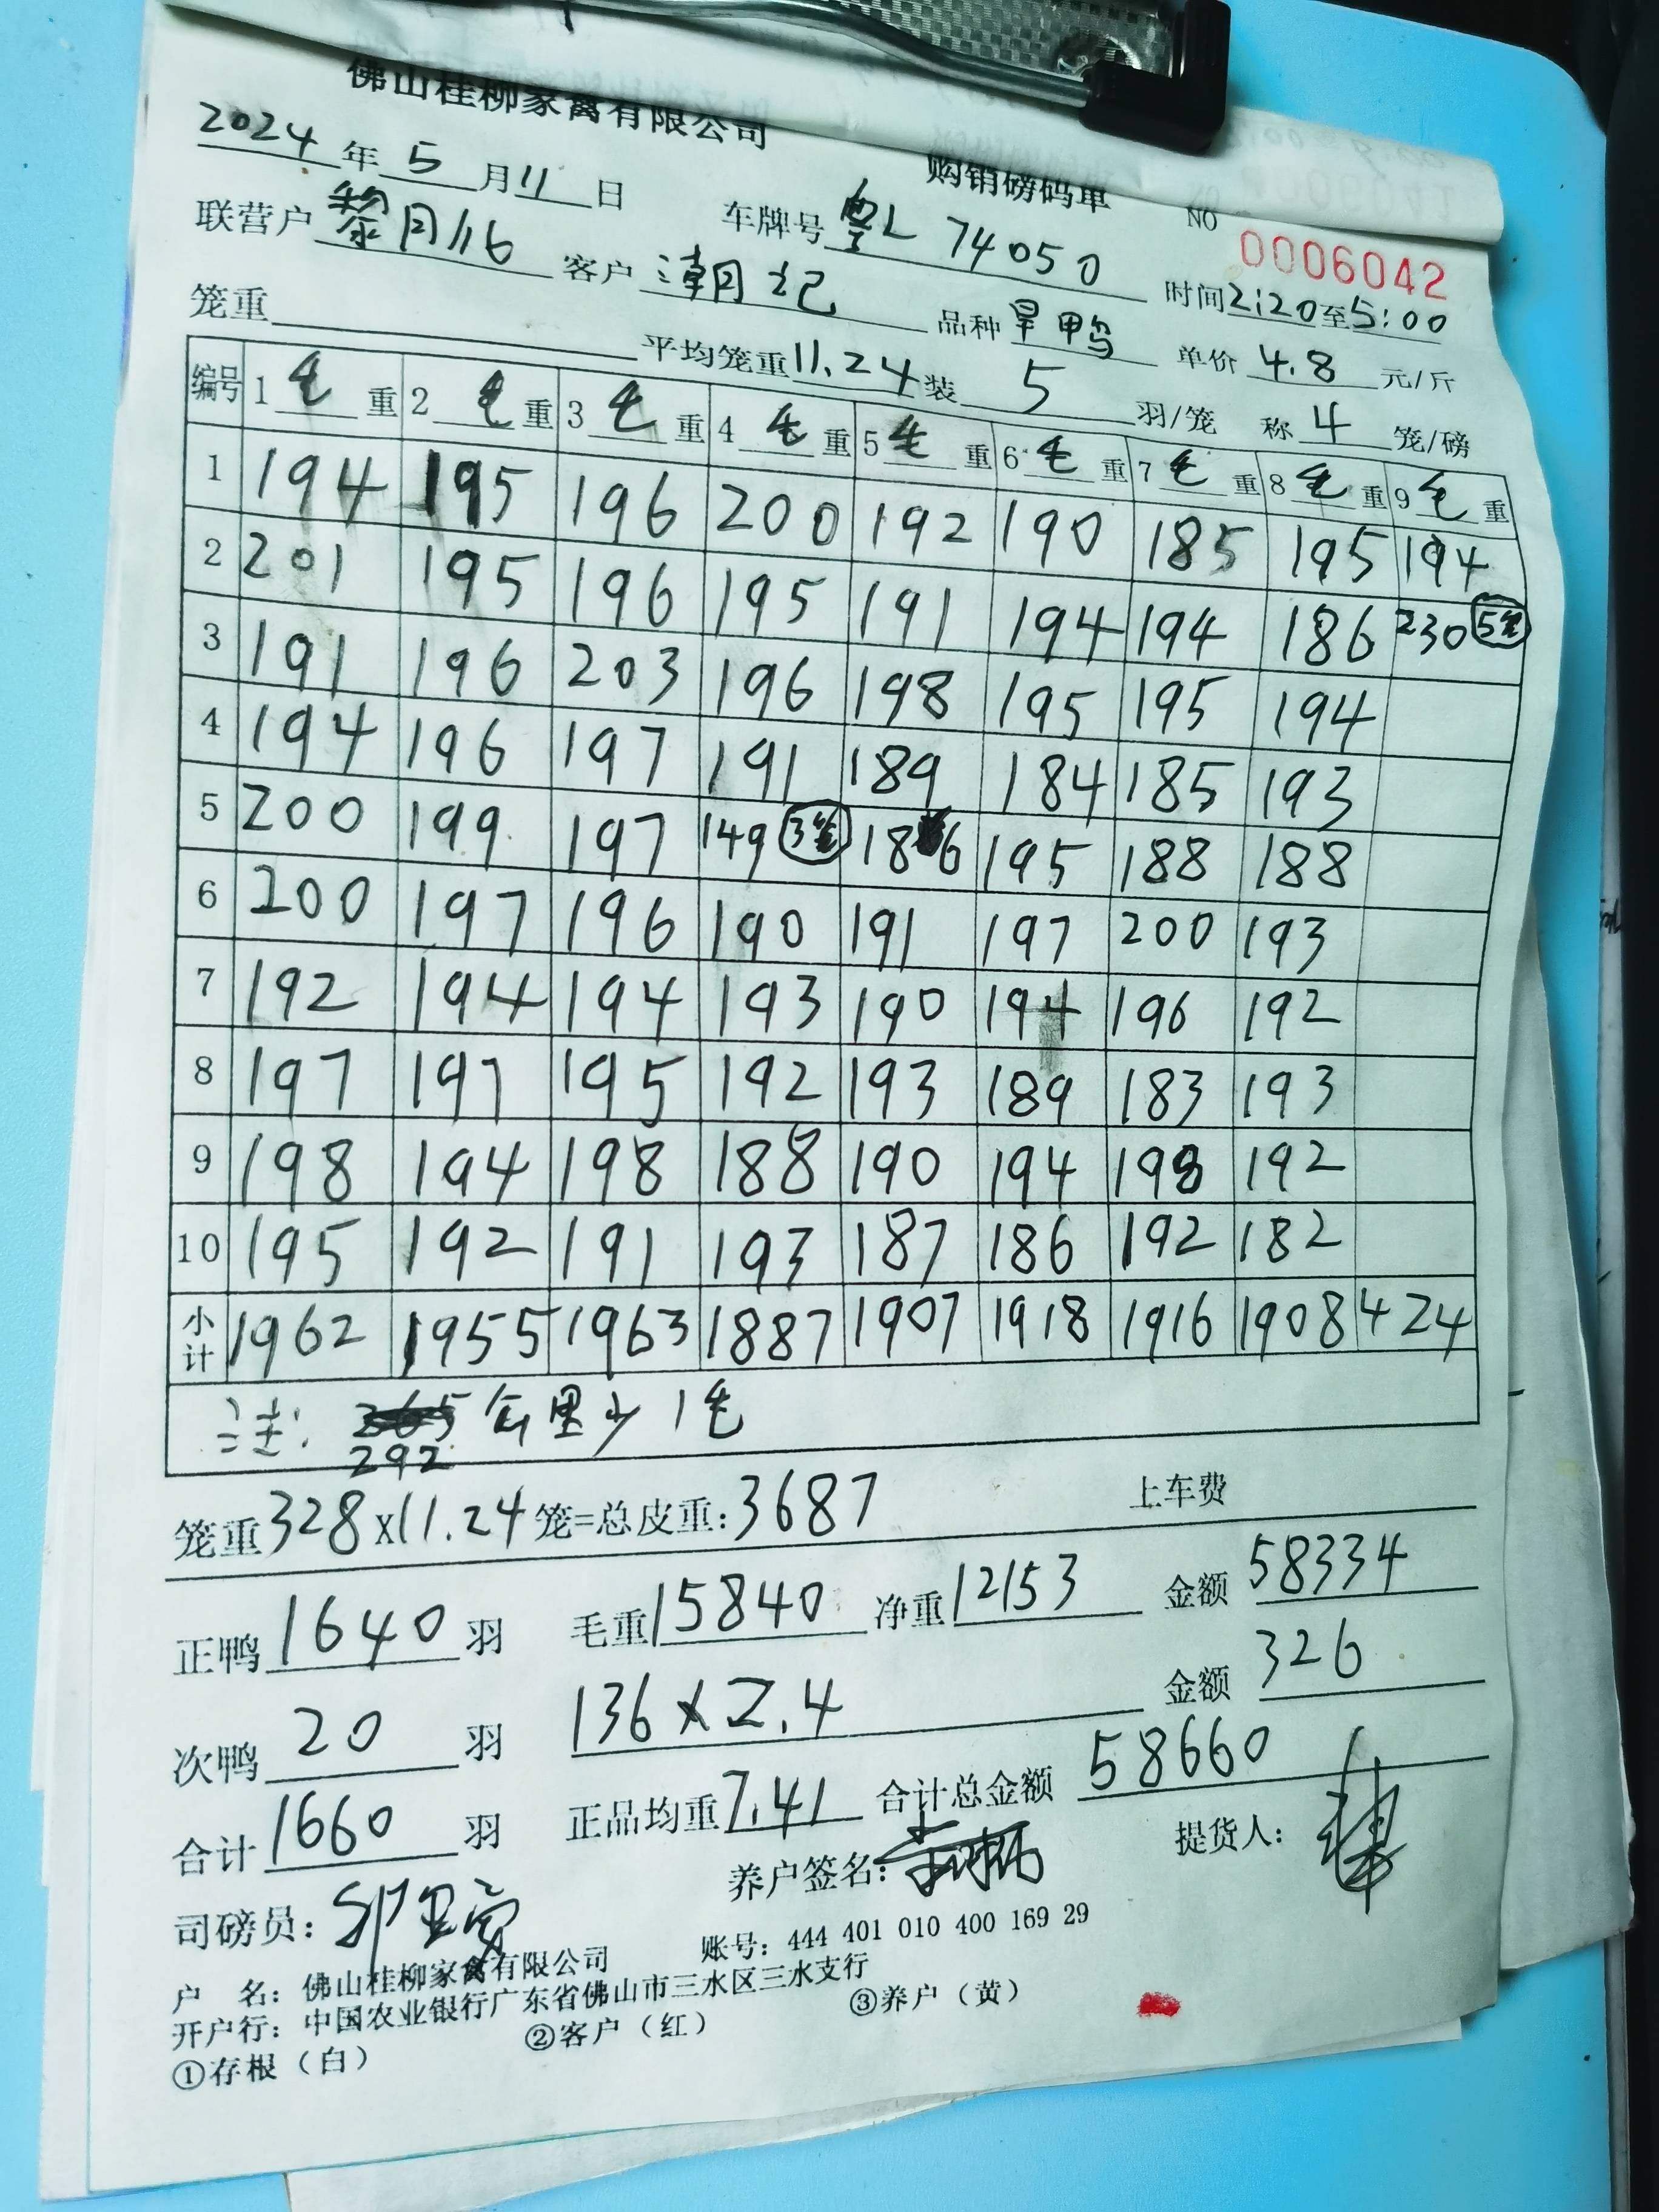 佛山桂柳家禽有限公司
购销磅码单
2024年5月11日
NO 0006042
联营户 黎月116 车牌号 74050
客户 潮记 时间2:20至5:00
品种 旱鸭
笼重 平均笼重11.24 装 5 羽/笼 单价 4.8 元/斤
称 4 笼/磅
编号 1 毛 重 2 毛 重 3 毛 重 4 毛 重 5 毛 重 6 毛 重 7 毛 重 8 毛 重 9 毛 重
1 194 195 196 200 192 190 185 195 194
2 201 195 196 195 191 194 194 186 230 5笼
3 191 196 203 196 198 195 195 194
4 194 196 197 191 189 184 185 193
5 200 199 197 149 3笼 186 195 188 188
6 200 197 196 190 191 197 200 193
7 192 194 194 193 190 194 196 192
8 197 197 195 192 193 189 183 193
9 198 194 198 188 190 194 198 192
10 195 192 191 193 187 186 192 182
小计 1962 1955 1963 1887 1907 1918 1916 1908 424
注: 少1毛
292
笼重328x11.24笼=总皮重:3687 上车费
正鸭 1640 羽 毛重15840 净重12153 金额 58334
次鸭 20 羽 136 x 2.4 金额 326
合计 1660 羽 正品均重7.41 合计总金额 58660
养户签名: 提货人:
司磅员:
户 名: 佛山桂柳家禽有限公司 账号: 444 401 010 400 169 29
开户行: 中国农业银行广东省佛山市三水区三水支行
①存根（白） ②客户（红） ③养户（黄）